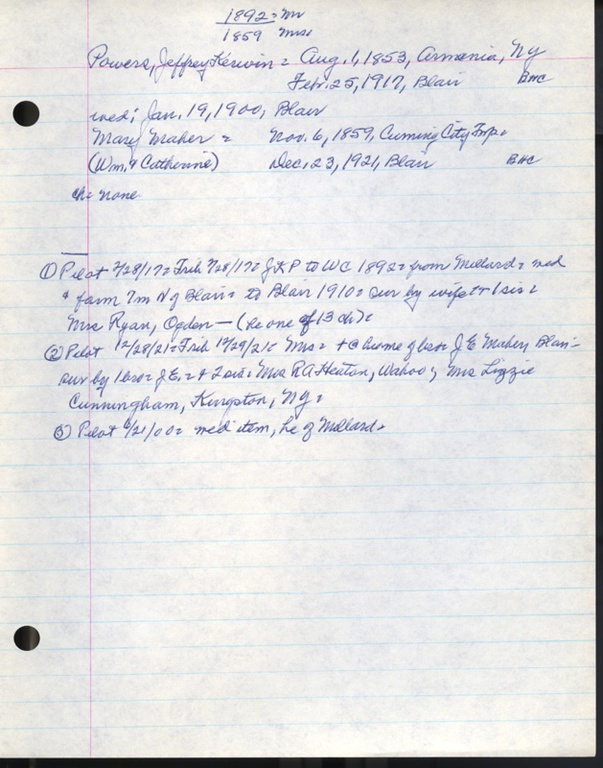 1892 = Mr
1859 Mrs
Powers, Jeffrey Kerwin = Aug. 1, 1853, Armenia, Ny
Feb. 25, 1917, Blair BMC
wed; Jan. 19, 1900, Blair
Mary Maher = Nov. 6, 1859, Cuming City Twp.
(Wm. & Catherine) Dec. 23, 1921, Blair BMC
ch = none
① Pilot 2/28/17 = Trib 2/28/17 = JKP to WC 1892 = from Millard = wed
& farm 7m N of Blair = to Blair 1910 = sur by wife + 1 sis =
Mrs Ryan, Ogden — (he one of 13 ch) =
② Pilot 12/28/21 = Trib 12/29/21 = Mrs = home of bro J E Maher, Blair =
sur by 1 bro = J E. = + 2 sis: Mrs RA Heaton, Wahoo; Mrs Lizzie
Cunningham, Kingston, Ny =
③ Pilot 2/21/00 = wed item, he of Millard.